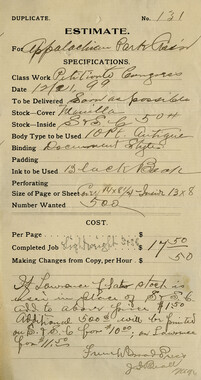 DUPLICATE. No. 131
ESTIMATE.
For Appalachian Park Assn
SPECIFICATIONS.
Class Work Petition to Congress
Date 12/21/99
To be Delivered Soon as possible
Stock—Cover Manilla
Stock—Inside S. & S. C. 50#
Body Type to be Used 10 Pt. Antique
Binding Document Style
Padding
Ink to be Used Black Book
Perforating
Size of Page or Sheet 8 1/4 Inside 12x8
Number Wanted 500
COST.
Per Page
Completed Job $17.50
Making Changes from Copy, per Hour 50
If Lawrence stock is
used in place of S. & S. C.
add to above price $1.50
Additional 500 will be printed
on S. & S. C for $10.00; on Lawrence
for $11.50
French Broad Press
Mgr